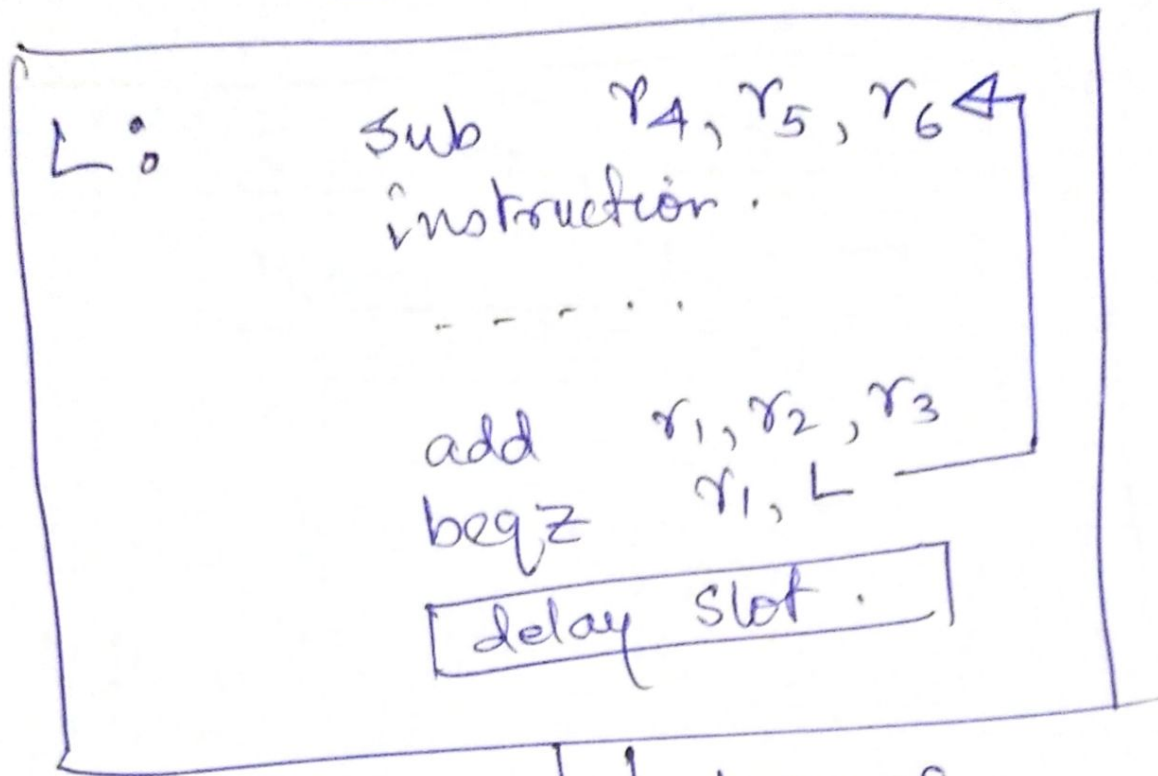 L: sub r4, r5, r6
instruction.
- - - . .
add r1, r2, r3
beqz r1, L
delay slot.